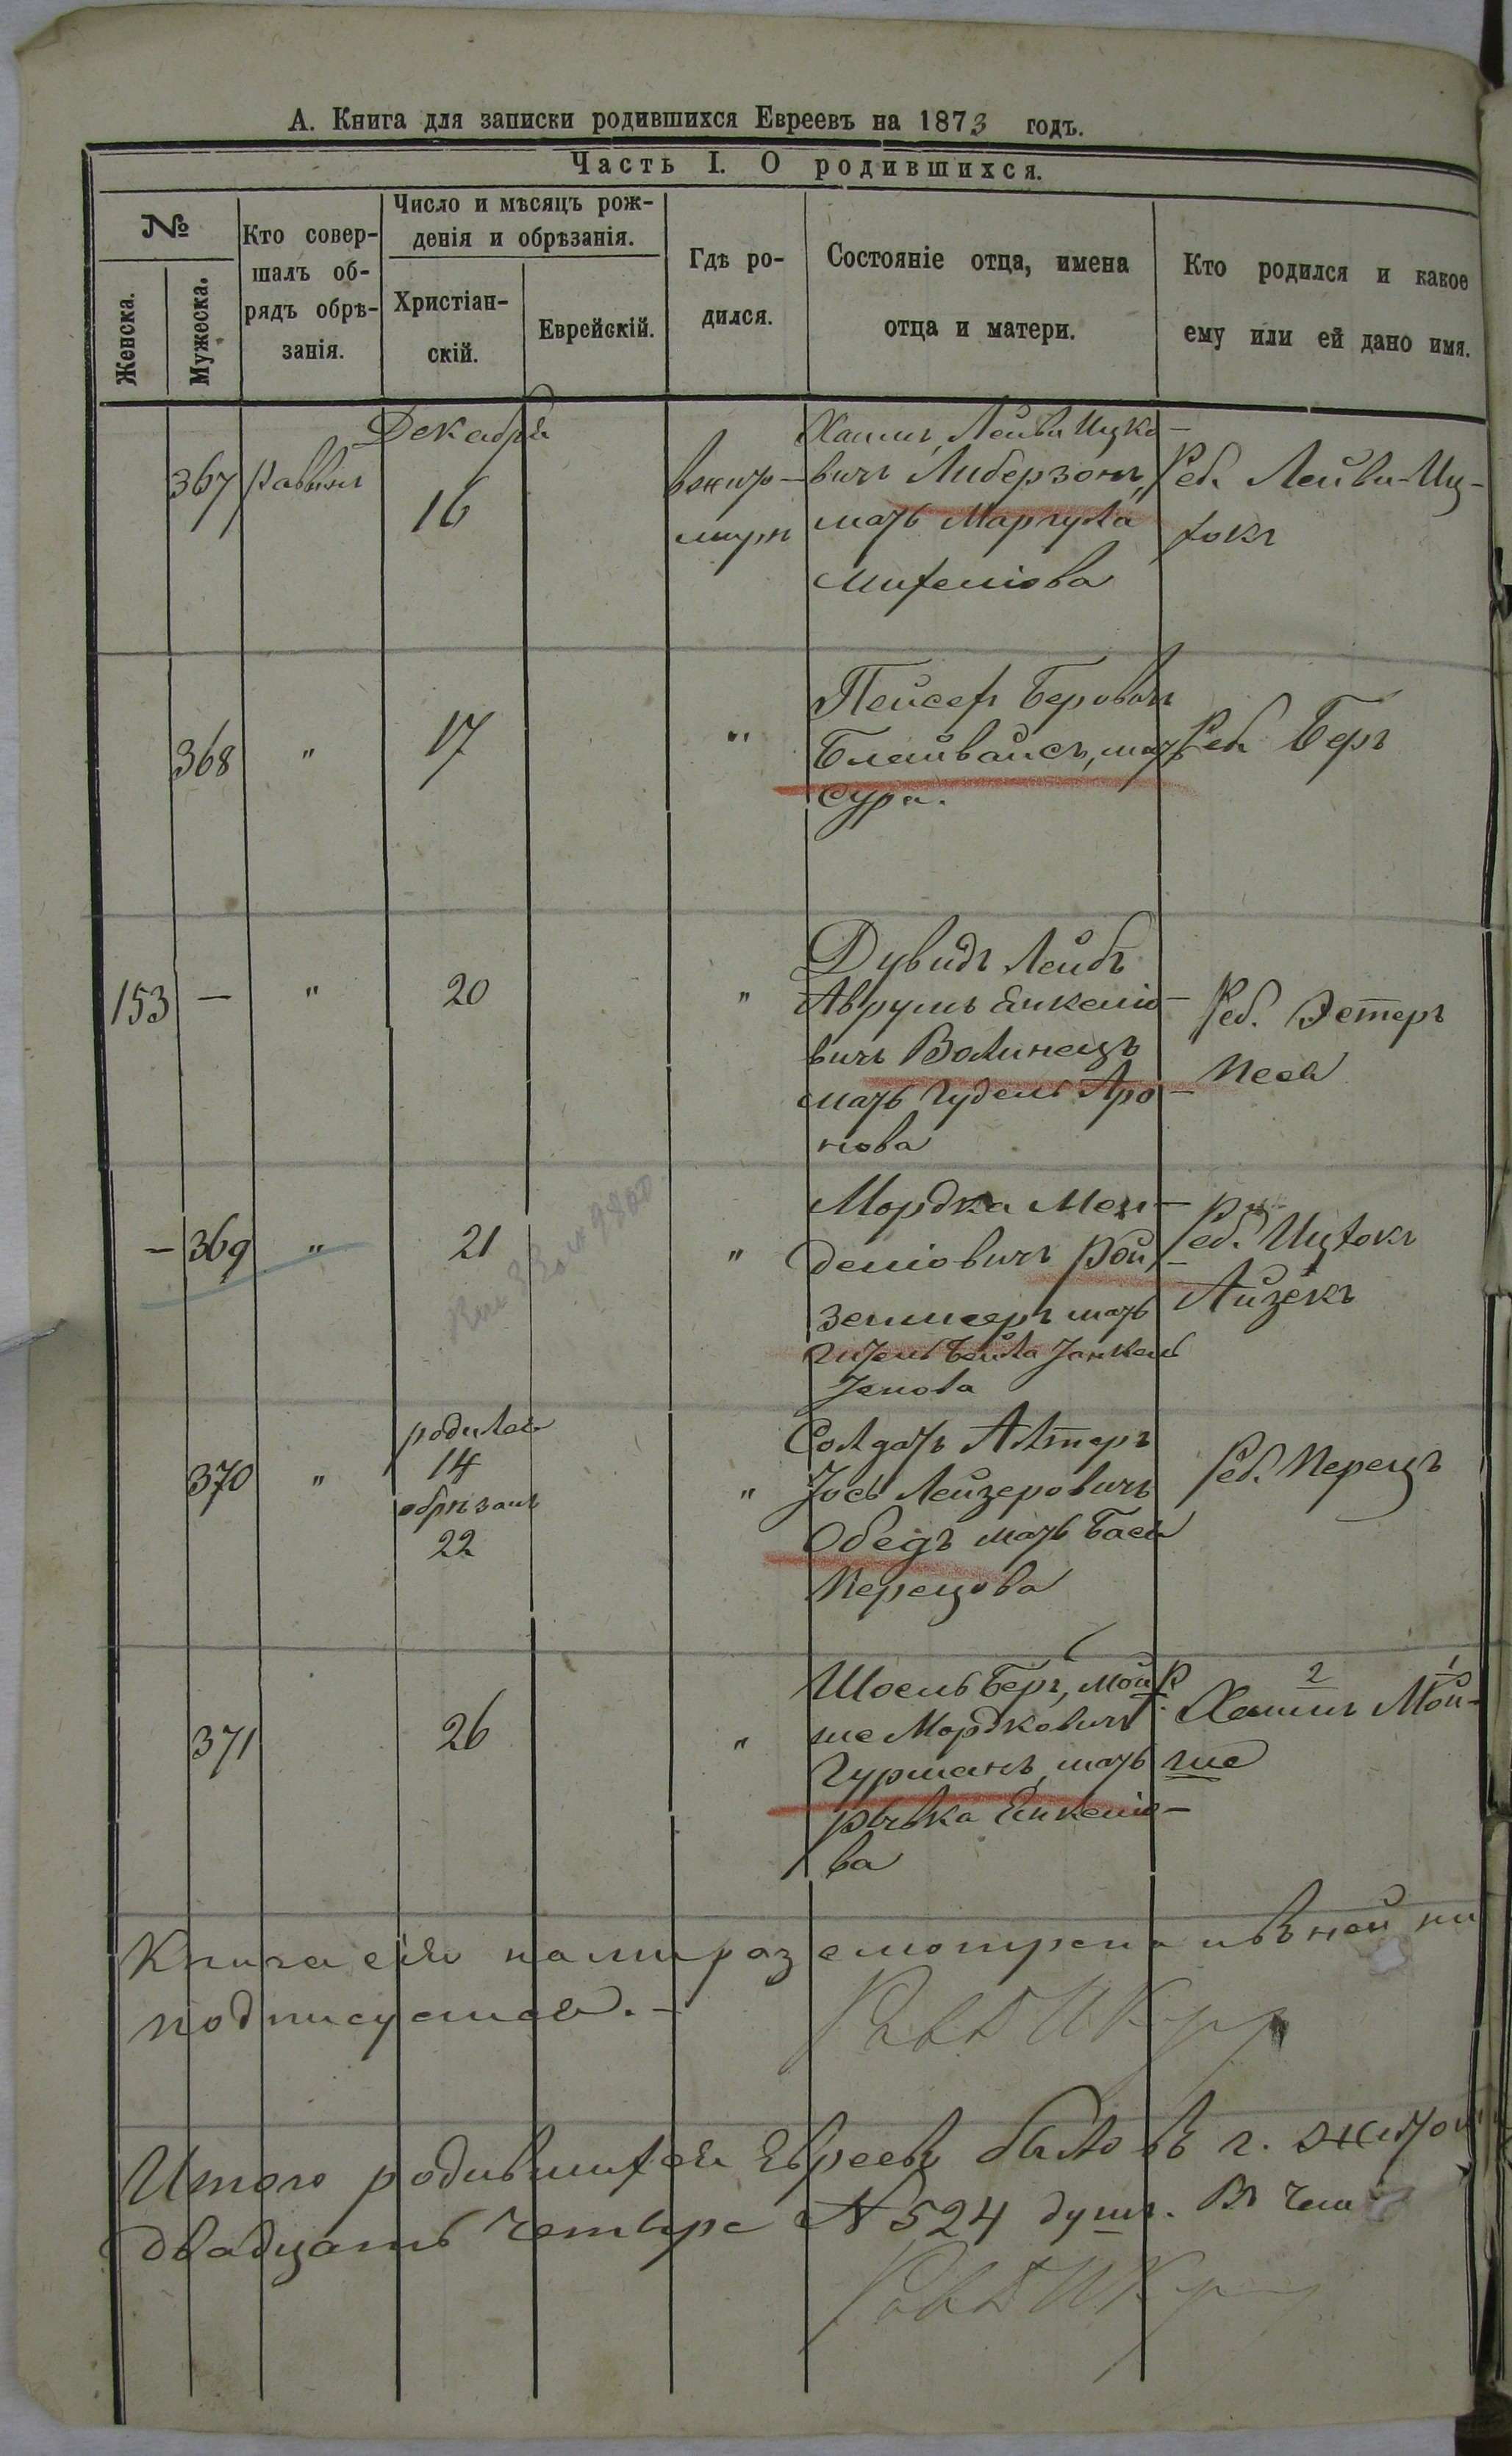 А. Книга для записки родившихся Евреевъ на 1873 годъ.
Часть I. О родившихся.
№
Женска.
Мужеска.
Кто совер-
шалъ об-
рядъ обрѣ-
занія.
Число и мѣсяцъ рож-
денія и обрѣзанія.
Христіан-
скій.
Еврейскій.
Гдѣ ро-
дился.
Состояніе отца, имена
отца и матери.
Кто родился и какое
ему или ей дано имя.
Декабря
367 раввинъ 16
в жито-
мирѣ
Хаимъ Лейви Ицко-
вичъ Либерзонъ,
мать Маргуля
Михеліова
Реб. Лейви-Иц-
хокъ
368 " 17 "
Пейсехъ Беровичъ
Блайвайсъ, мать
Сура.
Реб Беръ
153 — " 20 "
Дувидъ Лейбъ
Аврумъ Енкеліо-
вичъ Волинецъ
мать Гудель Аро-
нова
Реб. Эстеръ
Песя
— 369 " 21 "
Мордка Мен-
деліовичъ Рой-
зенмееръ мать
Гитель Бейла Јанкель
Јенова
Реб. Ицхокъ
Айзекъ
370 "
родился
14
обрѣзанъ
22
"
Солдатъ Алтеръ
Јось Лейзеровичъ
Обедъ мать Бася
Перецова
Реб. Перецъ
371 26 "
Шоель Беръ, Мой-
ше Мордковичъ
Гурманъ, мать
Ривка Енкеліо-
ва
Р. 2 1
Хаимъ Мой-
ше
Книга сія нами разсмотрена и въ ней
подписуемся.—
Итого родившихся Евреевъ было въ г. Житом
двадцать четыре № 524 душъ. Въ чем